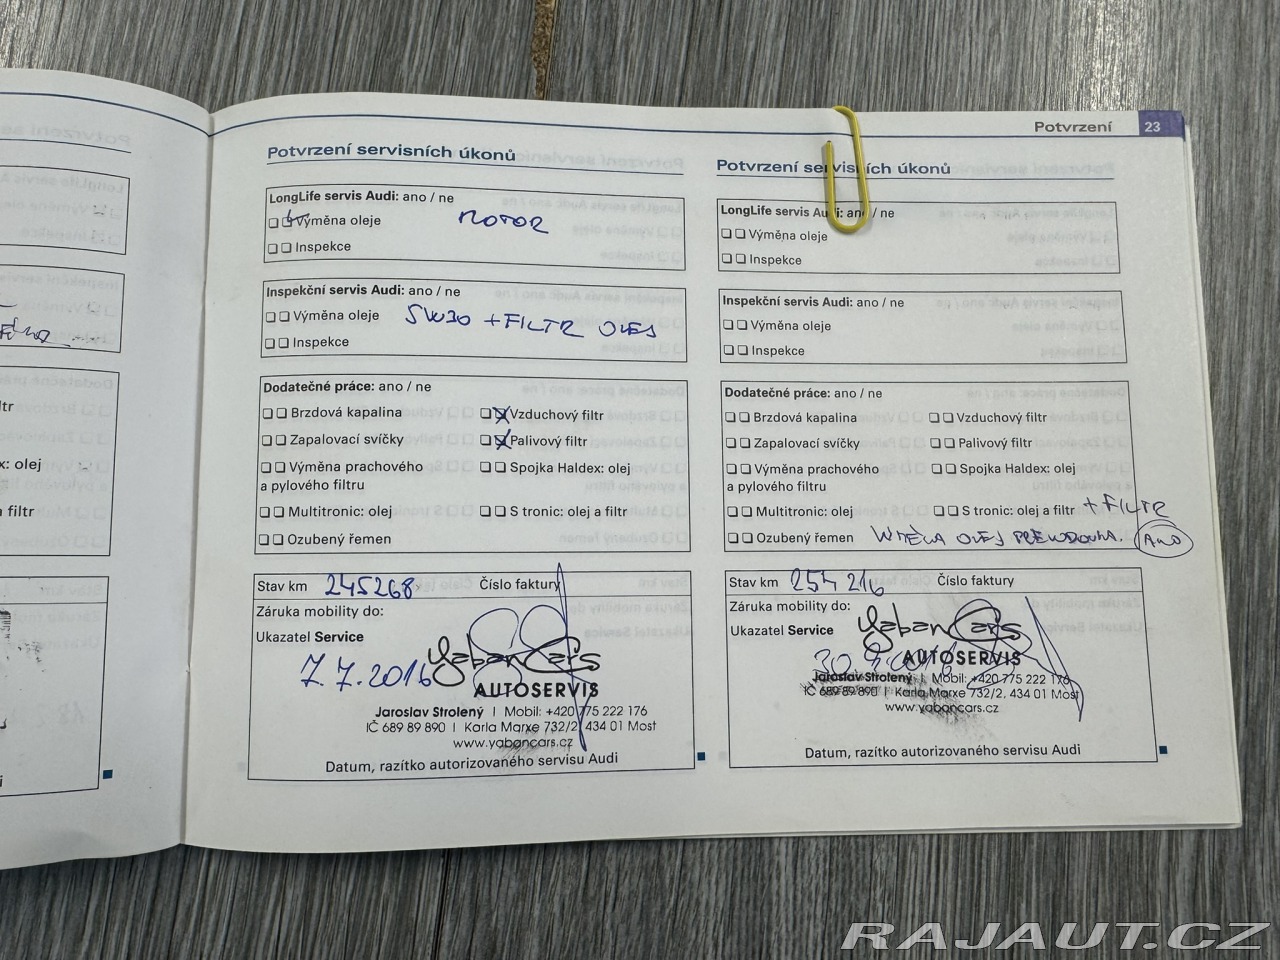 Potvrzení 23
Potvrzení servisních úkonů
LongLife servis Audi: ano / ne
Výměna oleje MOTOR
Inspekce
Inspekční servis Audi: ano / ne
Výměna oleje 5W30 + FILTR OLEJ
Inspekce
Dodatečné práce: ano / ne
Brzdová kapalina Vzduchový filtr
Zapalovací svíčky Palivový filtr
Výměna prachového Spojka Haldex: olej
a pylového filtru
Multitronic: olej S tronic: olej a filtr
Ozubený řemen
Stav km 245268 Číslo faktury
Záruka mobility do:
Ukazatel Service
7.7.2016 YabanCars
AUTOSERVIS
Jaroslav Strolený | Mobil: +420 775 222 176
IČ 689 89 890 | Karla Marxe 732/2, 434 01 Most
www.yabancars.cz
Datum, razítko autorizovaného servisu Audi
Potvrzení servisních úkonů
LongLife servis Audi: ano / ne
Výměna oleje
Inspekce
Inspekční servis Audi: ano / ne
Výměna oleje
Inspekce
Dodatečné práce: ano / ne
Brzdová kapalina Vzduchový filtr
Zapalovací svíčky Palivový filtr
Výměna prachového Spojka Haldex: olej
a pylového filtru
Multitronic: olej S tronic: olej a filtr + FILTR
Ozubený řemen OLEJ ANO
Stav km 254216 Číslo faktury
Záruka mobility do:
Ukazatel Service
YabanCars
AUTOSERVIS
Jaroslav Strolený | Mobil: +420 775 222 176
IČ 689 89 890 | Karla Marxe 732/2, 434 01 Most
www.yabancars.cz
Datum, razítko autorizovaného servisu Audi
x: olej
filtr
RAJAUT.CZ